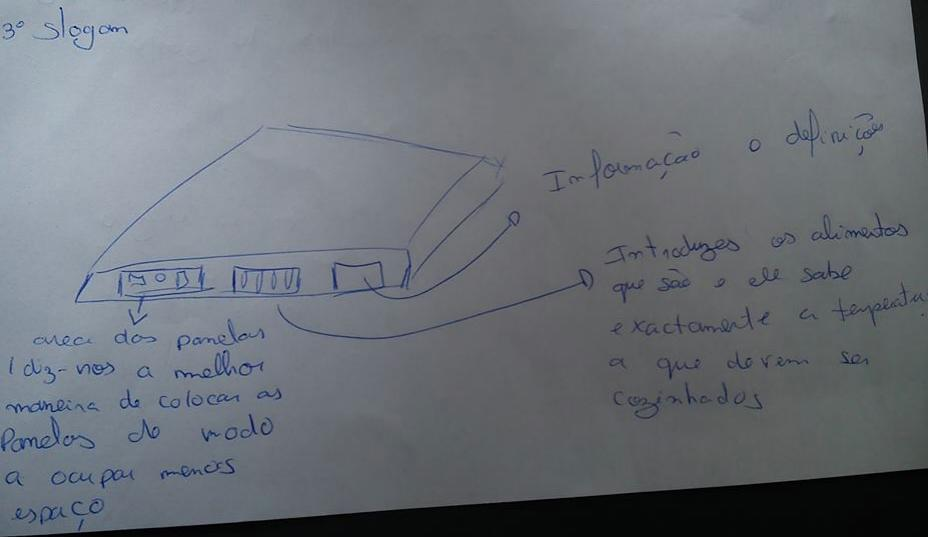 3º Slogam
Informação e definições
Introduzes os alimentos
que são e ele sabe
exactamente a temperatu
a que devem ser
cozinhados
area das panelas
diz-nos a melhor
maneira de colocar as
Panelas de modo
a ocupar menos
espaço